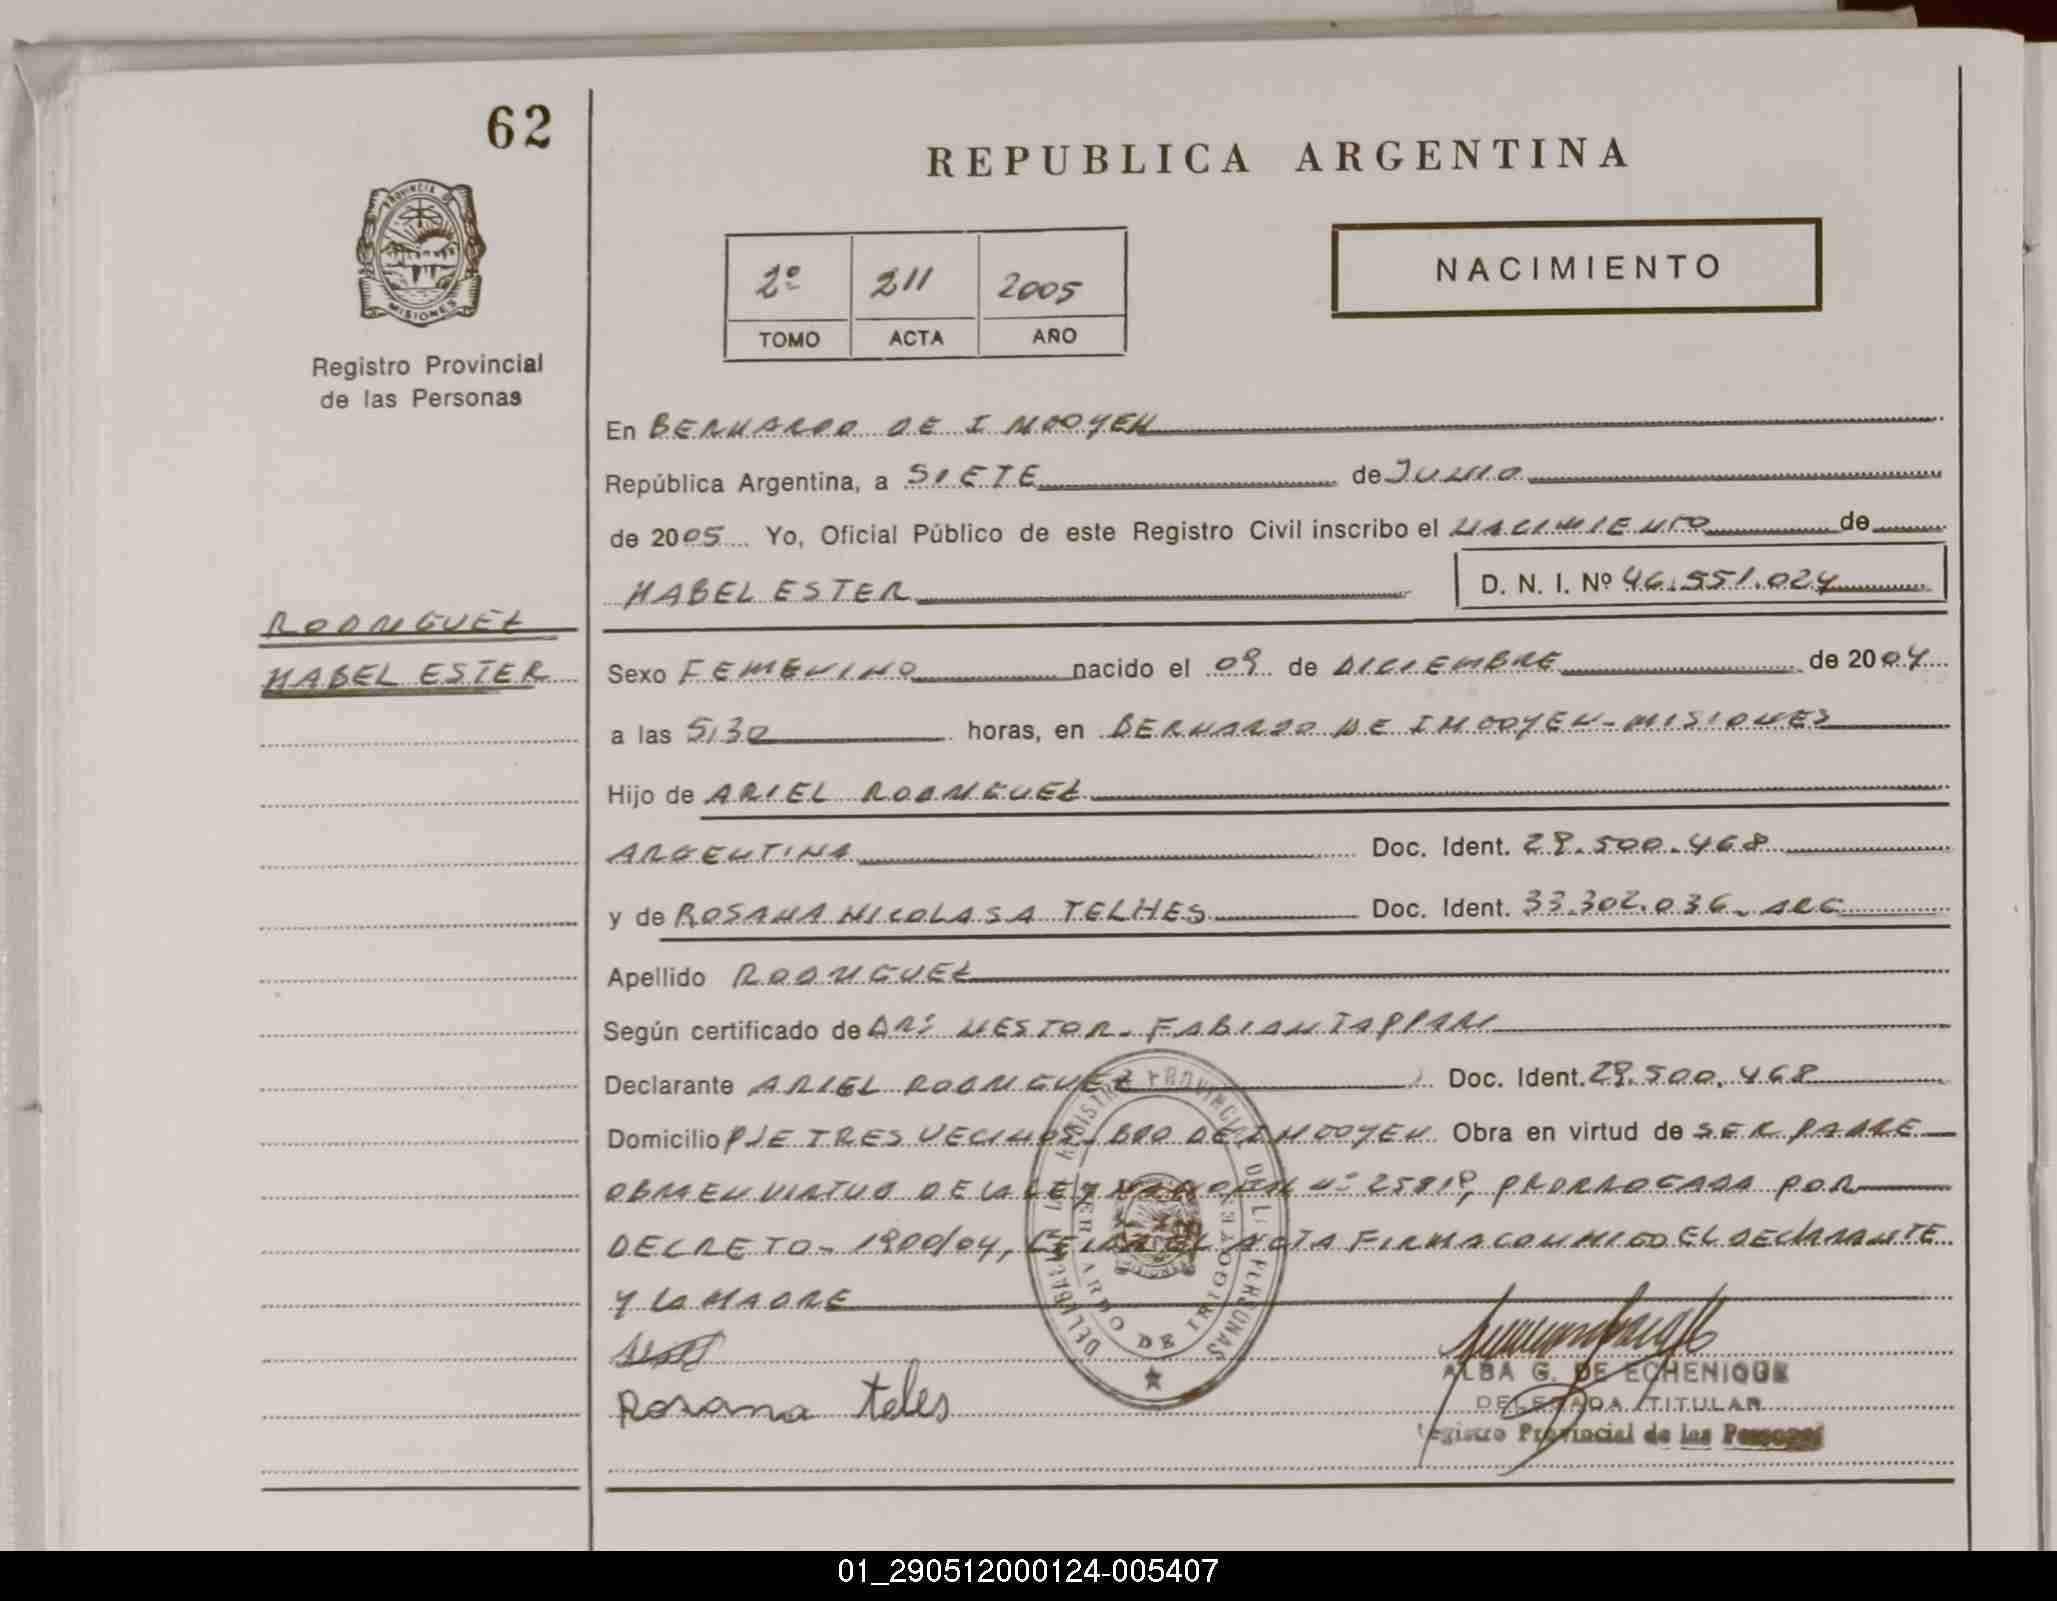 62
REPUBLICA ARGENTINA
PROVINCIA DE
MISIONES
Registro Provincial
de las Personas
2º 211 2005
TOMO ACTA AÑO
NACIMIENTO
En BERNARDO DE IRIGOYEN
República Argentina, a SIETE de JUNIO
de 2005 Yo, Oficial Público de este Registro Civil inscribo el NACIMIENTO de
MABEL ESTER D. N. I. Nº 46.551.024
RODRIGUEZ
MABEL ESTER
Sexo FEMENINO nacido el 09 de DICIEMBRE de 2004
a las 5,30 horas, en BERNARDO DE IRIGOYEN-MISIONES
Hijo de ARIEL RODRIGUEZ
ARGENTINA Doc. Ident. 29.500.468
y de ROSANA NICOLASA TELHES Doc. Ident. 33.302.036- ARG
Apellido RODRIGUEZ
Según certificado de DR: NESTOR- FABIAN
Declarante ARIEL RODRIGUEZ Doc. Ident. 29.500.468
Domicilio PJE TRES VECINOS- BDO DE IRIGOYEN Obra en virtud de SER PADRE
OBRA EN VIRTUD DE LA LEY NACIONAL Nº 25819, PRORROGADA POR
DECRETO- 1900/04, LEIDA EL ACTA FIRMA CONMIGO EL DECLARANTE
Y LA MADRE
Rosana teles
DEL REGISTRO PROVINCIAL DE LAS PERSONAS
BERNARDO DE IRIGOYEN
ALBA G. DE ECHENIQUE
DELEGADA TITULAR
Registro Provincial de las Personas
01_290512000124-005407